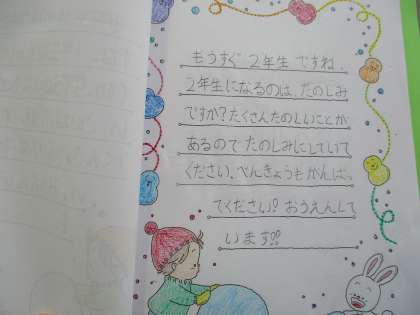 もうすぐ2年生ですね。
2年生になるのは、たのしみ
ですか?たくさんたのしいことが
あるのでたのしみにしていて
ください。べんきょうもがんばっ
てください!おうえんして
います!!